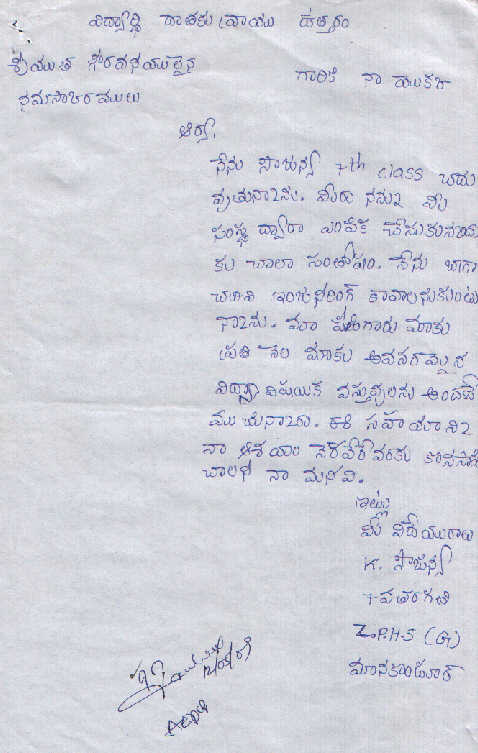 విద్యార్థి రాతకు వ్రాయు ఉత్తరం
శ్రీయుత గౌరవనీయులైన
గారికి నా యొక్క
నమస్కారములు
ఆర్య,
నేను సౌజన్య 7th class చదు
వుతున్నాను. మీరు నన్ను మీ
సంస్థ ద్వారా ఎంపిక చేసుకున్నందు
కు చాలా సంతోషం. నేను బాగా
చదివి ఇంజనీరింగ్ కావాలనుకుంటు
న్నాను. మాకు
ప్రతి నెల మాకు అవసరమైన
విద్యా విషయిక వస్తువులను అందజే
యుచున్నారు. ఈ సహాయాన్ని
నా ఆశయం నెరవేరేవరకు కొనసాగి
చాలని నా మనవి.
ఇట్లు
మీ విధేయురాలు
K. సౌజన్య
7 వతరగతి
Z.P.H.S (G)
మానకొండూర్